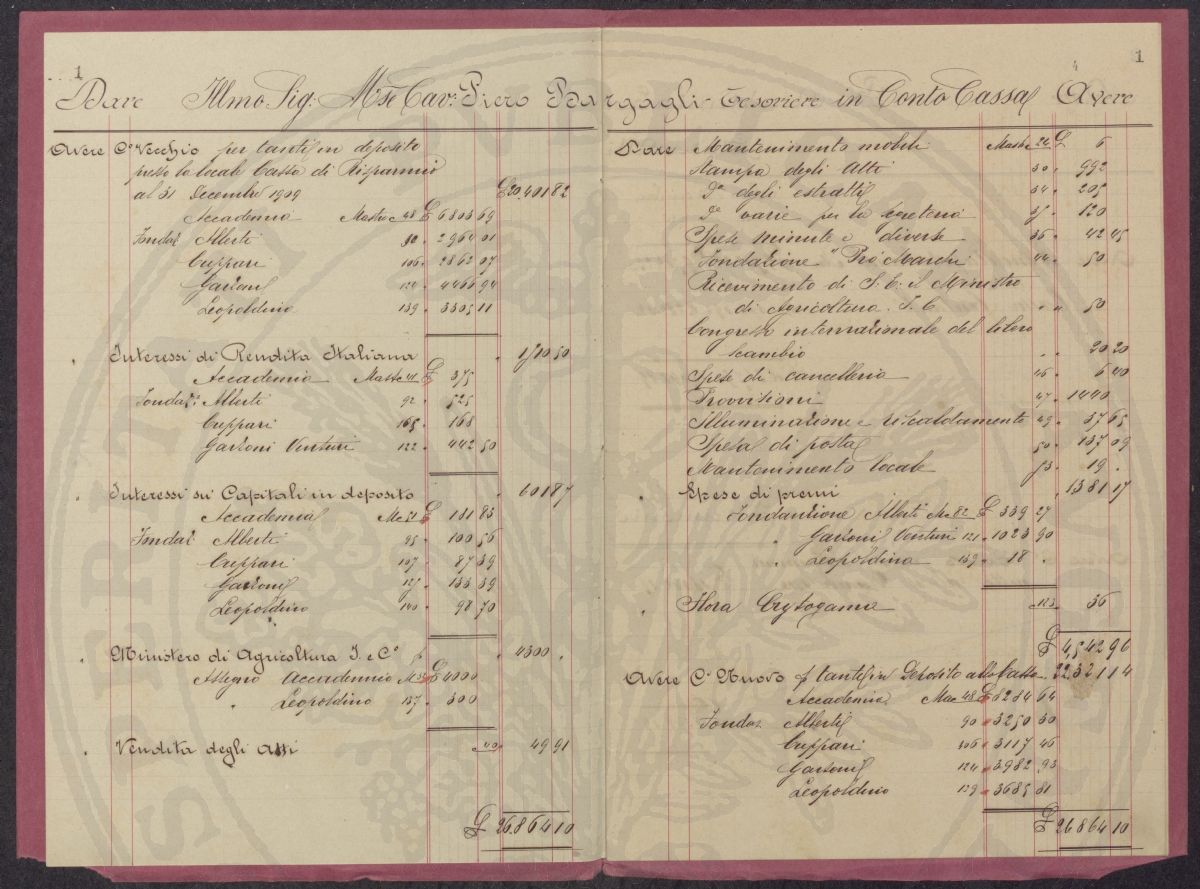 1
Dare Illmo Sig: Mse Cav: Piero Bargagli - Tesoriere in Conto Cassa Avere
Avere Co Vecchio per tanti in deposito
presso la locale Cassa di Risparmio
al 31 Decembre 1909 £ 20,401 82
Accademia Mastro c 48 £ 6803 69
Fondaz. Alberti 90 " 2964 01
Cuppari 106 " 2862 07
Garzoni 124 " 4466 94
Leopoldino 139 " 3305 11
" Interessi di Rendita Italiana " 1510 50
Accademia Mastro 41 £ 375
Fondaz. Alberti 92 " 525
Cuppari 165 " 168
Garzoni Venturi 122 " 442 50
" Interessi su Capitali in deposito " 601 87
Accademia £ 181 83
Fondaz. Alberti 95 " 100 56
Cuppari 107 " 87 39
Garzoni 127 " 133 39
Leopoldino 140 " 98 70
" Ministero di Agricoltura I. e Co " 4300 "
Assegno Accademia £ 4000
" Leopoldino 137 " 300
" Vendita degli Atti 40 " 49 91
£ 26,864 10
1
Dare Mantenimento mobili Mastro 26 £ 6
Stampa degli Atti 30 " 992
Do degli estratti 34 " 205
Do varie per la segreteria 35 " 120
Spese minute e diverse 36 " 42 45
Fondazione "Pro Marchi 44 " 50
Ricevimento di S. E. il Ministro
di Agricoltura I. C. " " 50
Congresso internazionale del libero
scambio " " 20 20
Spese di cancelleria 46 " 6 40
Provvisioni 47 " 1440
Illuminazione e riscaldamento 49 " 37 65
Spese di posta 50 " 137 09
Mantenimento locale 53 " 19 "
" Spese di premi " 1381 17
Fondazione Alberti Mc 82 £ 339 27
" Garzoni Venturi 121 " 1023 90
" Leopoldina 139 " 18 "
" Flora Crytogama 123 " 36
£ 4,542 96
Avere Co Nuovo p tanti in Deposito alla Cassa " 22321 14
Accademia Mac 48 £ 8284 64
Fondaz. Alberti 90 " 3250 30
Cuppari 106 " 3117 46
Garzoni 124 " 3982 93
Leopoldino 139 " 3685 81
£ 26864 10